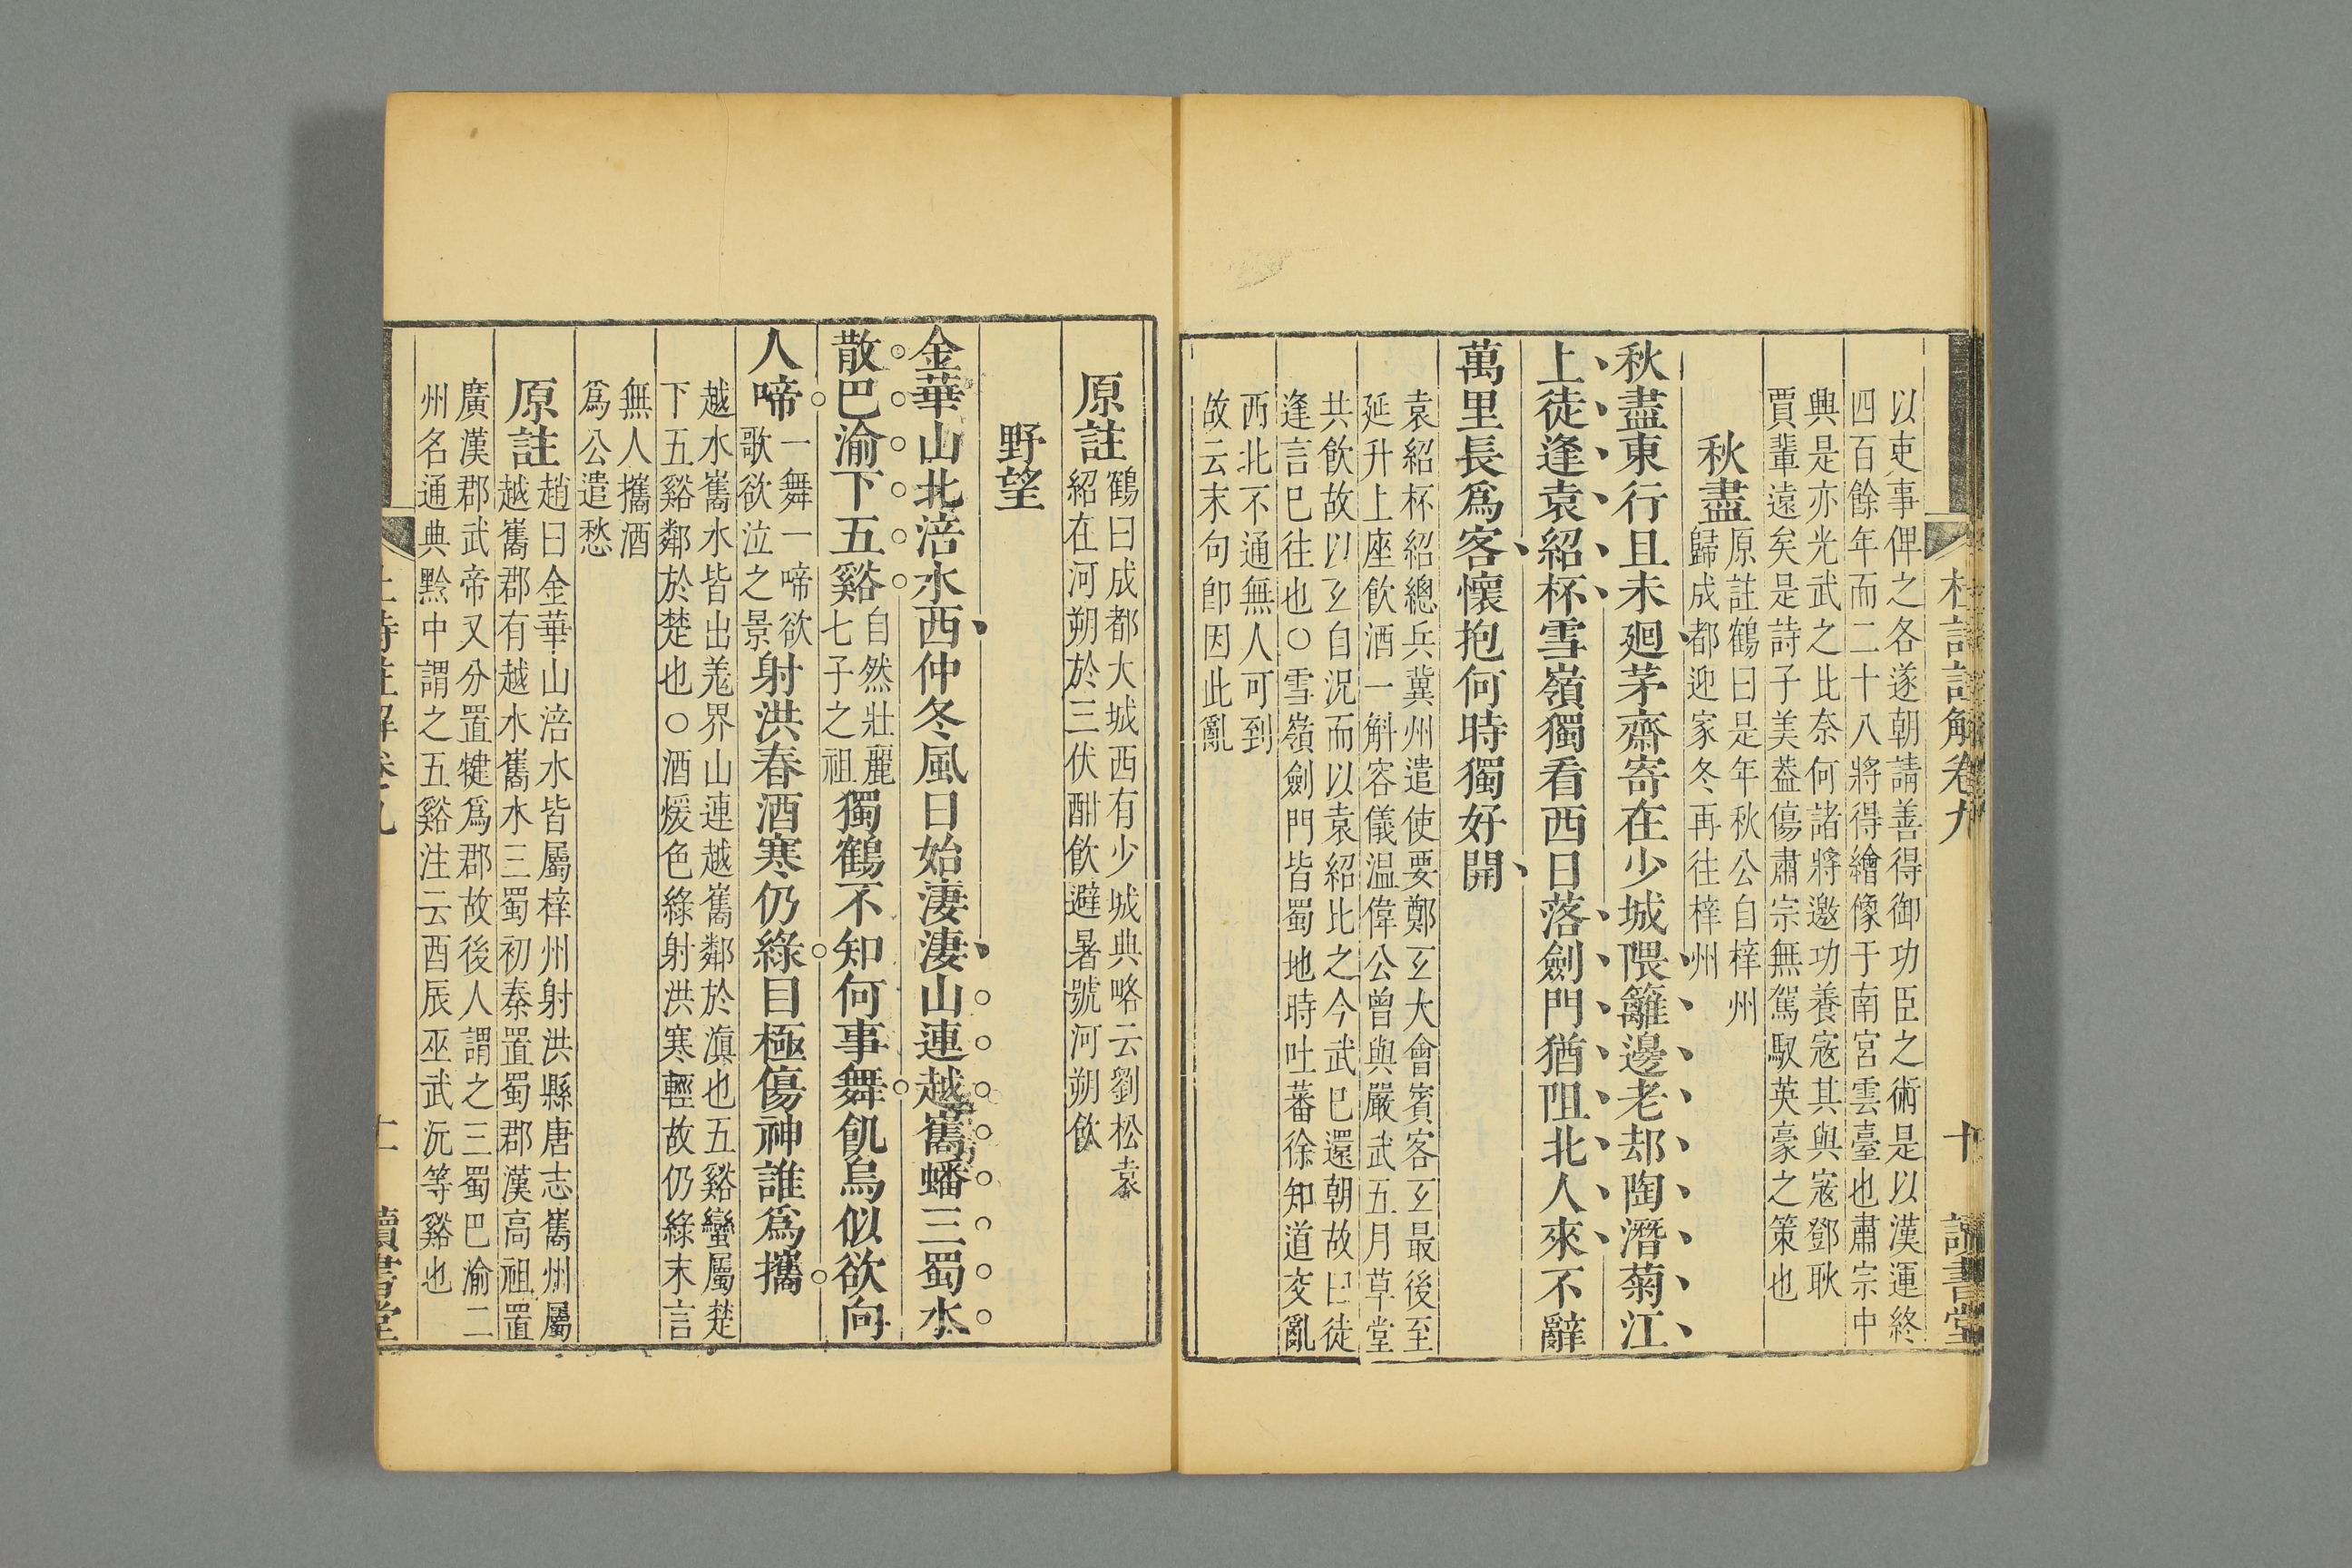 杜詩註解卷九 十 讀書堂
以吏事俾之各遂朝請善得御功臣之術是以漢運終
四百餘年而二十八將得繪像于南宮雲臺也肅宗中
興是亦光武之比奈何諸將邀功養寇其與寇鄧耿
賈輩遠矣是詩子美葢傷肅宗無駕馭英豪之策也
秋盡
原註鶴曰是年秋公自梓州
歸成都迎家冬再往梓州
秋盡東行且未廻茅齋寄在少城隈籬邊老却陶潛菊江
上徒逢袁紹杯雪嶺獨看西日落劍門猶阻北人來不辭
萬里長爲客懷抱何時獨好開
袁紹杯紹總兵冀州遣使要鄭玄大會賓客玄最後至
延升上座飲酒一斛容儀温偉公曾與嚴武五月草堂
共飲故以玄自況而以袁紹比之今武已還朝故曰徒
逢言已往也○雪嶺劍門皆蜀地時吐蕃徐知道交亂
西北不通無人可到
故云末句卽因此亂
原註
鶴曰成都大城西有少城典略云劉松袁
紹在河朔於三伏酣飲避暑號河朔飲
野望
金華山北涪水西仲冬風日始淒淒山連越巂蟠三蜀水
散巴渝下五谿
自然壯麗
七子之祖
獨鶴不知何事舞飢烏似欲向
人啼
一舞一啼欲
歌欲泣之景
射洪春酒寒仍綠目極傷神誰爲攜
越水巂水皆出羗界山連越巂鄰於滇也五谿蠻屬楚
下五谿鄰於楚也○酒煖色綠射洪寒輕故仍綠末言
無人攜酒
爲公遣愁
原註
趙曰金華山涪水皆屬梓州射洪縣唐志巂州屬
越巂郡有越水巂水三蜀初秦置蜀郡漢高祖置
廣漢郡武帝又分置犍爲郡故後人謂之三蜀巴渝二
州名通典黔中謂之五谿注云酉辰巫武沅等谿也
讀書堂